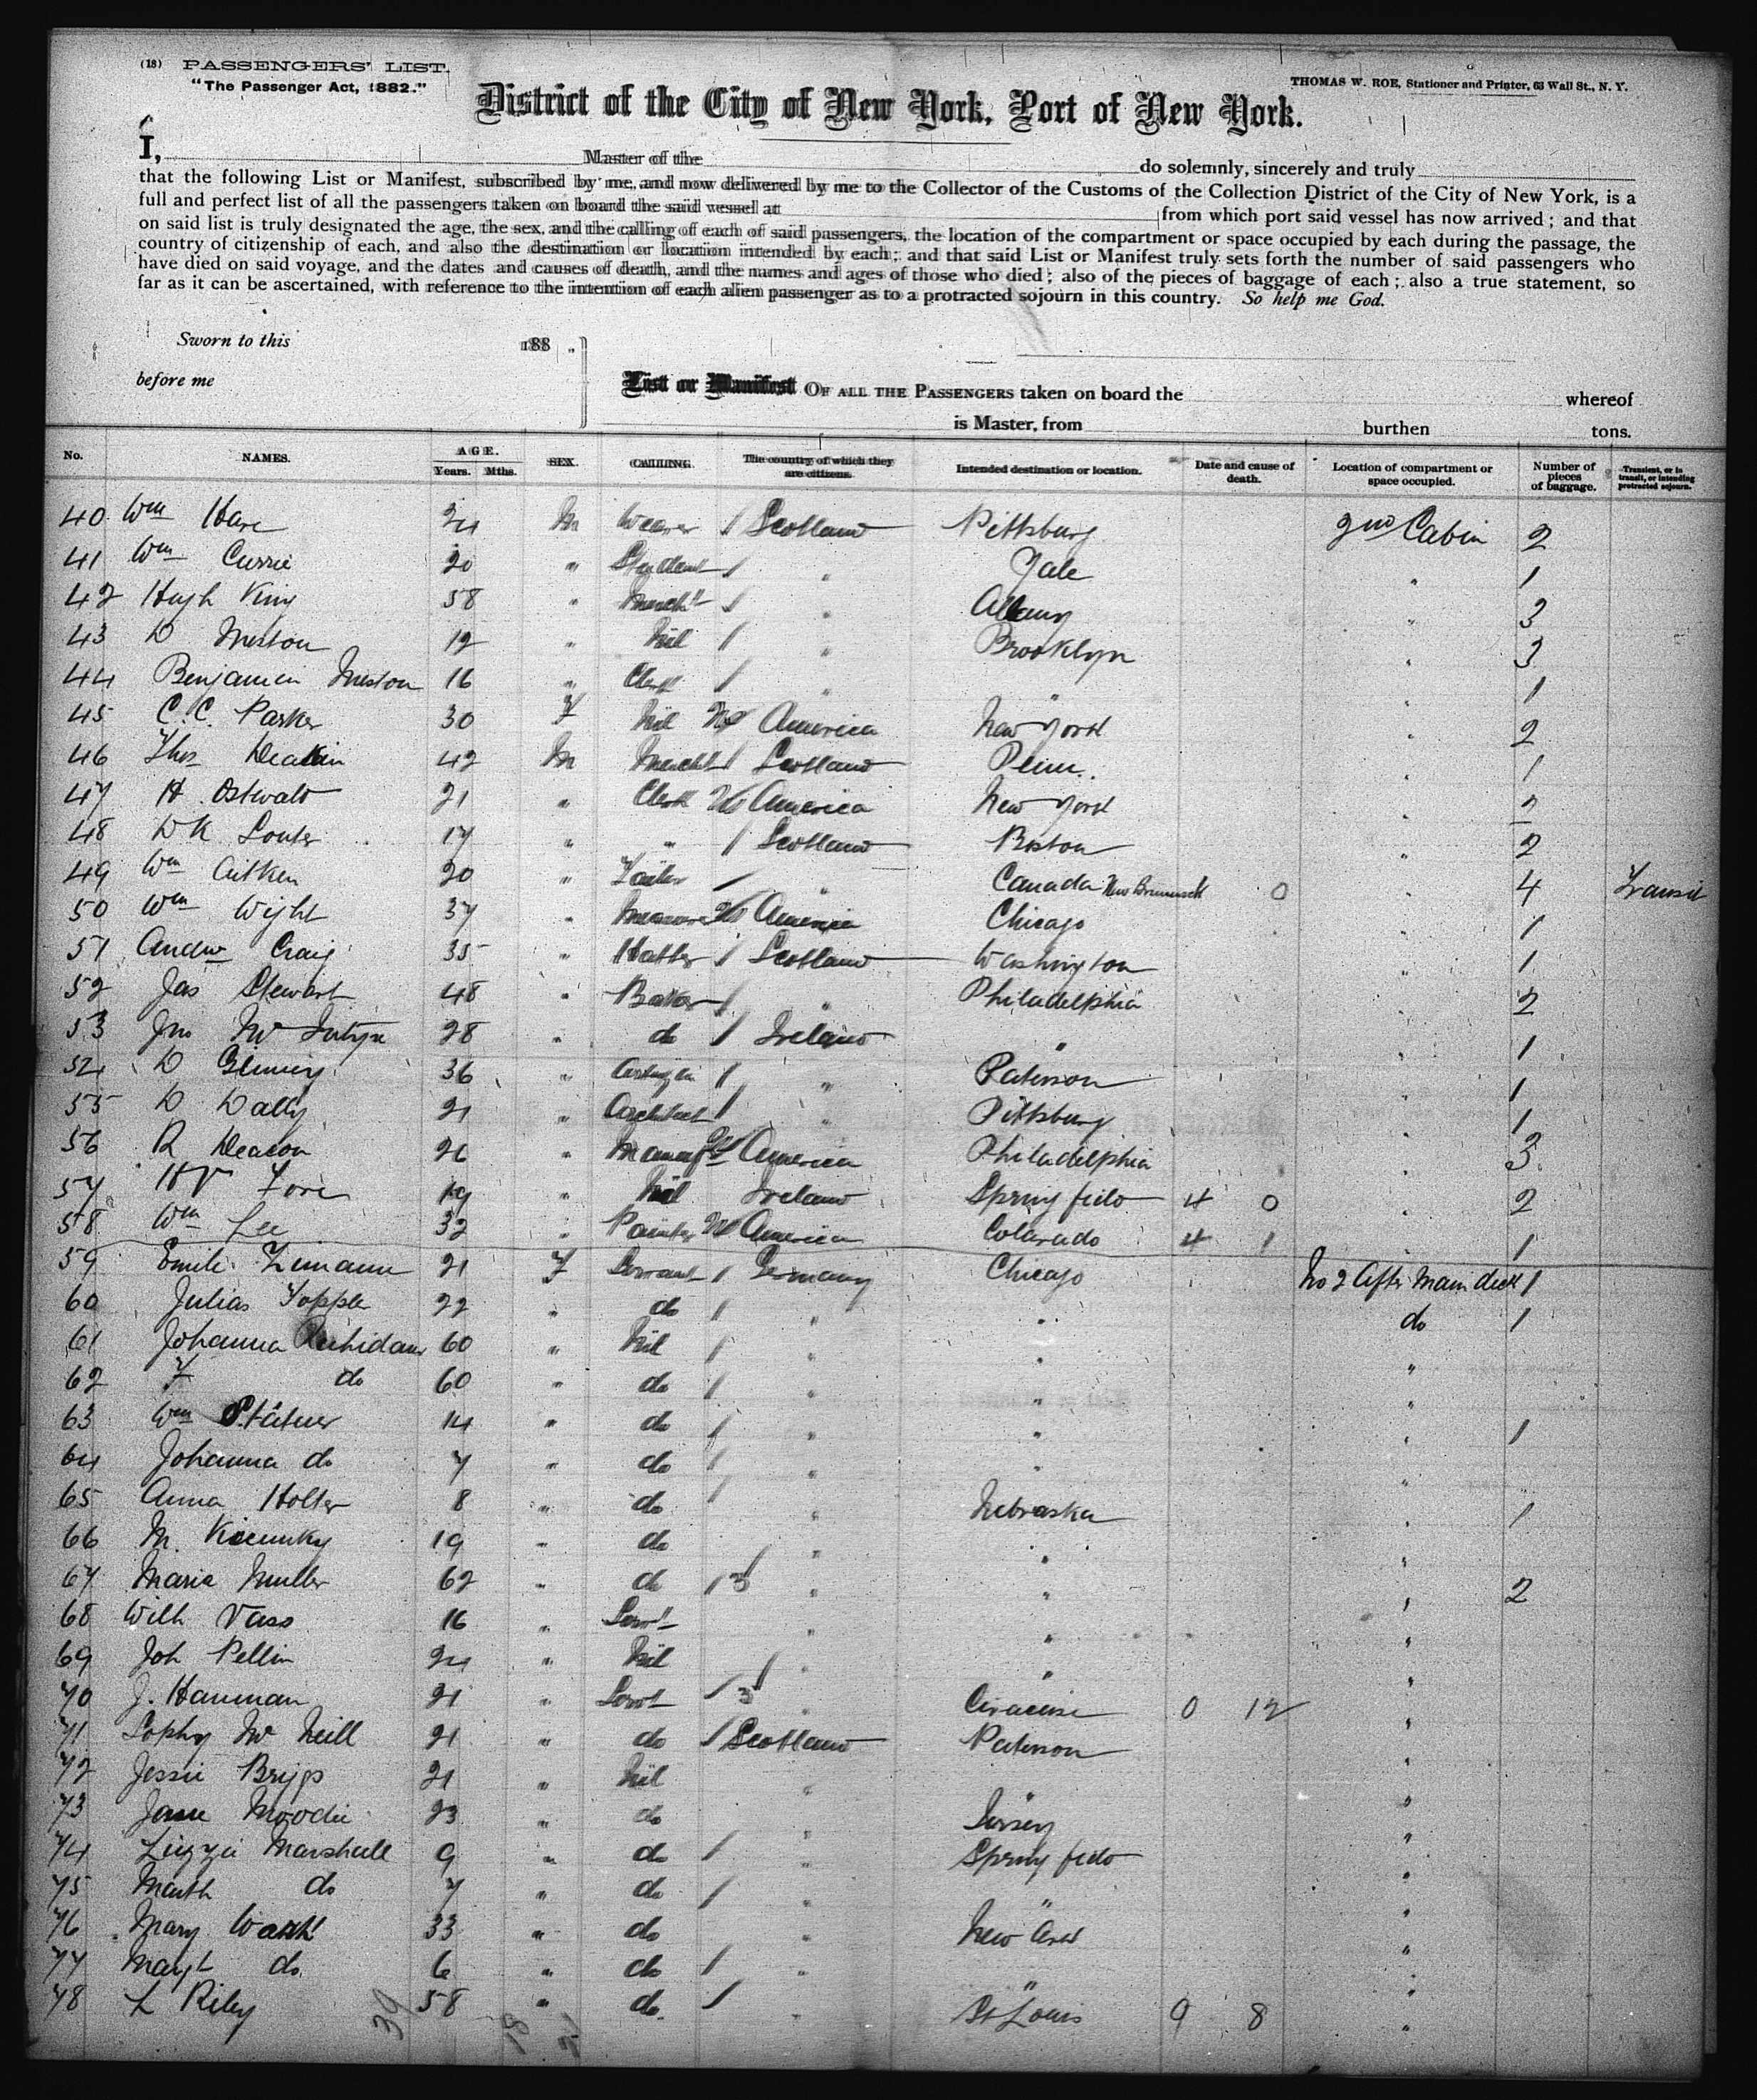 (18) PASSENGERS' LIST.
"The Passenger Act, 1882."
THOMAS W. ROE, Stationer and Printer, 63 Wall St., N. Y.
District of the City of New York, Port of New York.
I, Master of the do solemnly, sincerely and truly
that the following List or Manifest, subscribed by me, and now delivered by me to the Collector of the Customs of the Collection District of the City of New York, is a
full and perfect list of all the passengers taken on board the said vessel at from which port said vessel has now arrived; and that
on said list is truly designated the age, the sex, and the calling of each of said passengers, the location of the compartment or space occupied by each during the passage, the
country of citizenship of each, and also the destination or location intended by each; and that said List or Manifest truly sets forth the number of said passengers who
have died on said voyage, and the dates and causes of death, and the names and ages of those who died; also of the pieces of baggage of each; also a true statement, so
far as it can be ascertained, with reference to the intention of each alien passenger as to a protracted sojourn in this country. So help me God.
Sworn to this 188
before me
List or Manifest OF ALL THE PASSENGERS taken on board the whereof
is Master, from burthen tons.
No. NAMES. AGE. Years. Mths. SEX. CALLING. The country of which they are citizens. Intended destination or location. Date and cause of death. Location of compartment or space occupied. Number of pieces of baggage. Transient, or in transit, or intending protracted sojourn.
40 Wm Hare 24 M Weaver / Scotland Pittsburg 2nd Cabin 2
41 Wm Currie 20 " Student / " Yale " 1
42 Hugh King 58 " Mercht / " Albany " 3
43 D Meston 12 " Nil / " Brooklyn " 3
44 Benjamin Meston 16 " Clerk / " " " 1
45 C. C. Parker 30 F Nil America New York " 2
46 Thos Deakin 42 M Mercht / Scotland Penn. " 1
47 H. Ostwald 21 " Clerk America New York " 2
48 D K Souter 17 " " / Scotland Boston " 2
49 Wm Aitken 20 " Tailor / " Canada New Brunswick 0 " 4 Transit
50 Wm Wight 37 " America Chicago " 1
51 Andw Craig 35 " Hatter / Scotland Washington " 1
52 Jas Stewart 48 " Baker / " Philadelphia " 2
53 Jno McIntyre 28 " do / Ireland " " 1
54 D 36 " / " Paterson " 1
55 D Dally 21 " Architect / " Pittsburg " 1
56 R Deacon 26 " Manuf America Philadelphia " 3
57 19 " Nil Ireland Springfield 4 0 " 2
58 Wm Lee 32 " Painter America Colorado 4 1 " 1
59 Emile Zimann 21 F Servant / Germany Chicago No 2 After Main deck 1
60 Julias Toppler 22 " do / " " do 1
61 Johanna 60 " Nil / " " "
62 F do 60 " do / " " "
63 Wm 14 " do / " " " 1
64 Johanna do 7 " do / " " "
65 Anna Holter 8 " do / " Nebraska " 1
66 M. 19 " do / " " "
67 Maria Muller 62 " do / 3 " " " 2
68 Wilh Vass 16 " Servt " " "
69 Joh Pellin 24 " Nil / " " "
70 J. Hanman 21 " Servt / 3 " 0 12 "
71 Sophy McNeill 21 " do / Scotland Paterson "
72 Jessie Briggs 21 " Nil " " "
73 Jane Moodie 23 " do " Jersey "
74 Lizzie Marshall 9 " do / " Springfield "
75 Marth do 7 " do / " " "
76 Mary 33 " do " New Ark "
77 Margt do 6 " do / " " "
78 L Riley 58 " do / " St Louis 9 8 "
39 18 21